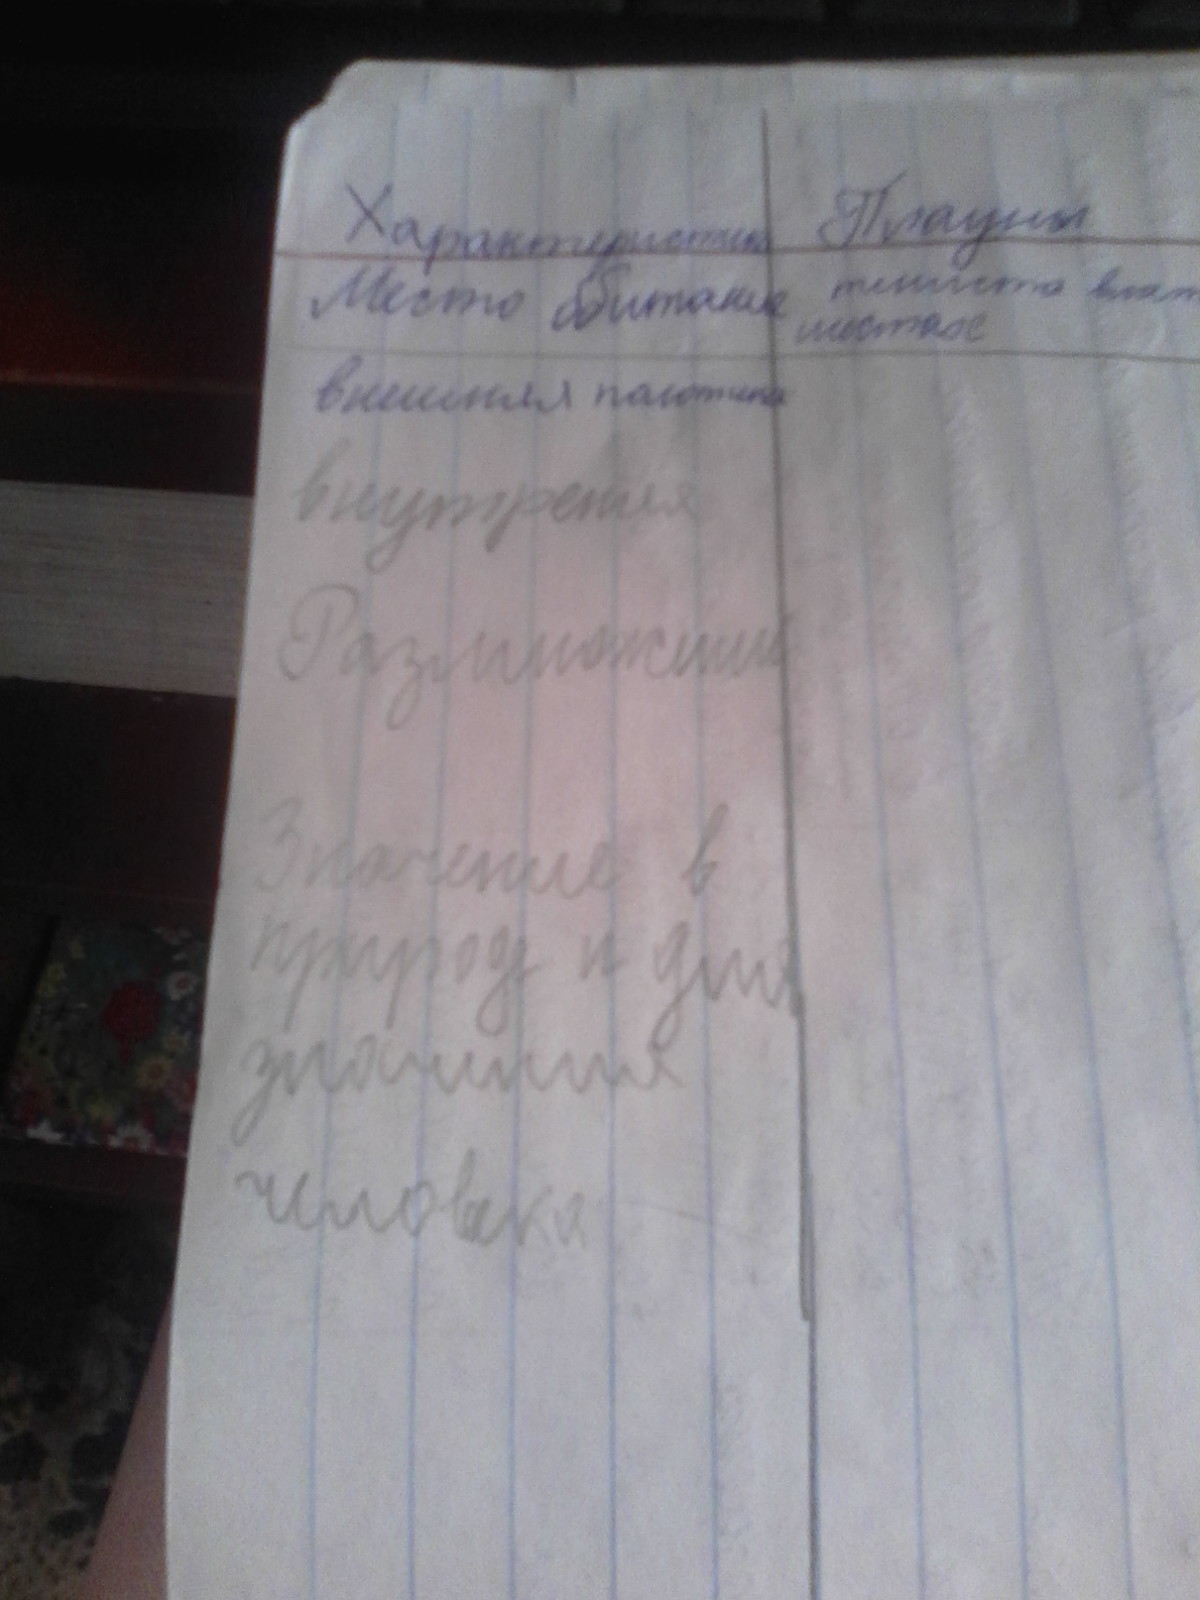 Характеристика Плауны
Место обитание тенисто влаж
местах
внешняя
внутреняя
Размножение
Значение в
природе и для
значения
человека